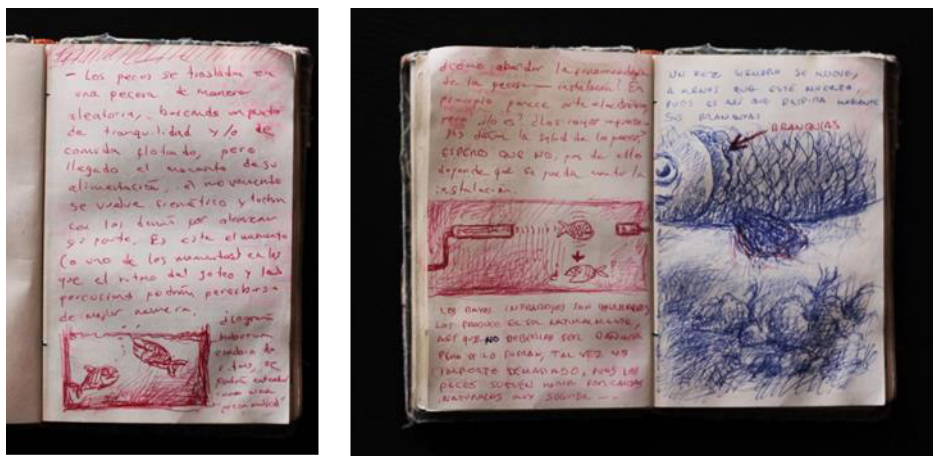 - Los peces se trasladan en
una pecera de manera
aleatoria, buscando un punto
de tranquilidad y/o de
comida flotando, pero
llegado el momento de su
alimentación, el movimiento
se vuelve simétrico y luchan
con los demás por alcanzar
su parte. Es este el momento
(o uno de los momentos) en los
que el ritmo del goteo y las
percusiones podrán percibirse
de mejor manera.
¿Cómo abordar la
de la pecera - instalación? En
principio parece arte electrónico
pero ¿lo es? ¿Los rayos infrarro-
jos dañan la salud de los peces?
ESPERO QUE NO, pues de ello
depende que se pueda montar la
instalación.
LOS RAYOS INFRARROJOS SON
LOS PRODUCE EL SOL NATURALMENTE,
ASÍ QUE NO DEBERÍAN SER
PERO SI LO FUERAN, TAL VEZ NO
IMPORTE DEMASIADO, PUES LOS
PECES SUELEN MORIR POR CAUSAS
NATURALES MUY SEGUIDO ...
UN PEZ SIEMPRE SE MUEVE,
A MENOS QUE ESTÉ
PUES ES ASÍ QUE RESPIRA MEDIANTE
SUS BRANQUIAS
BRANQUIAS